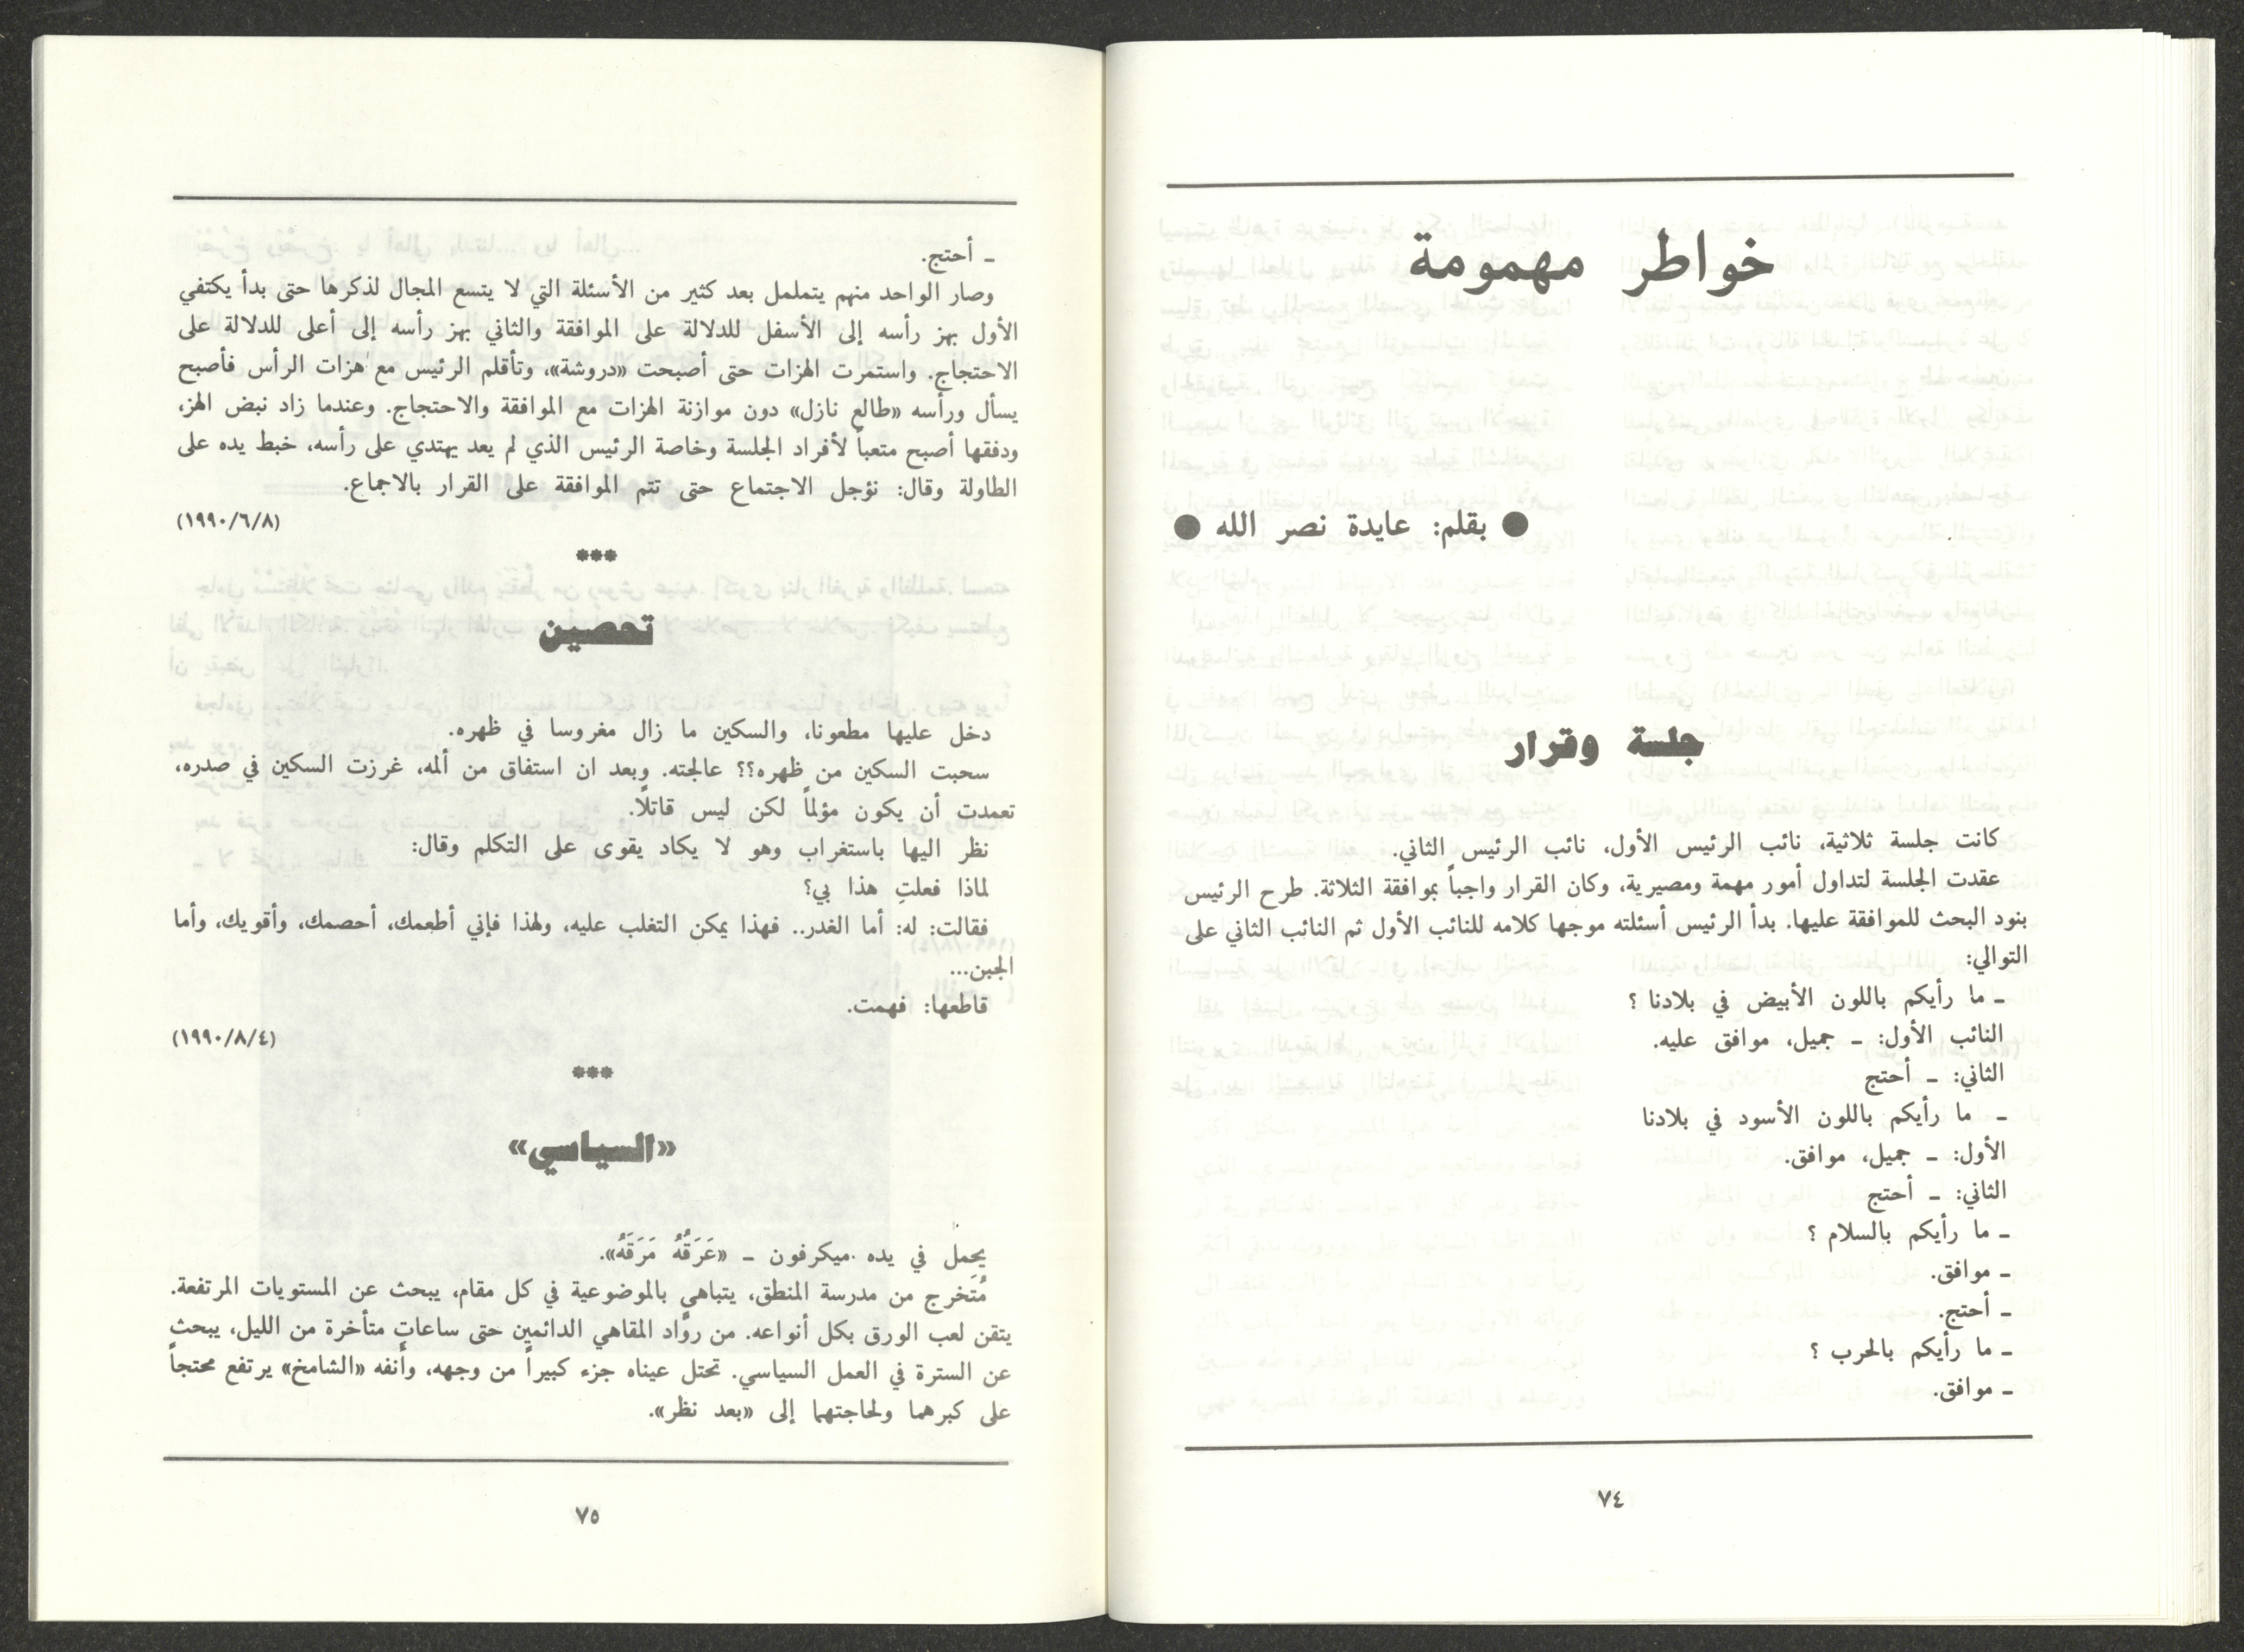 خواطر مهمومة
● بقلم: عايدة نصر الله ●
جلسة وقرار
كانت جلسة ثلاثية، نائب الرئيس الأول، نائب الرئيس الثاني.
عقدت الجلسة لتداول أمور مهمة ومصيرية، وكان القرار واجباً بموافقة الثلاثة. طرح الرئيس
بنود البحث للموافقة عليها. بدأ الرئيس أسئلته موجها كلامه للنائب الأول ثم النائب الثاني على
التوالي:
ـ ما رأيكم باللون الأبيض في بلادنا ؟
النائب الأول: ـ جميل، موافق عليه.
الثاني: ـ أحتج
ـ ما رأيكم باللون الأسود في بلادنا
الأول: ـ جميل، موافق.
الثاني: ـ أحتج
ـ ما رأيكم بالسلام ؟
ـ موافق.
ـ أحتج.
ـ ما رأيكم بالحرب ؟
ـ موافق.
٧٤
ـ أحتج.
وصار الواحد منهم يتململ بعد كثير من الأسئلة التي لا يتسع المجال لذكرها حتى بدأ يكتفي
الأول بهز رأسه إلى الأسفل للدلالة على الموافقة والثاني بهز رأسه إلى أعلى للدلالة على
الاحتجاج. واستمرت الهزات حتى أصبحت «دروشة»، وتأقلم الرئيس مع هزات الرأس فأصبح
يسأل ورأسه «طالع نازل» دون موازنة الهزات مع الموافقة والاحتجاج. وعندما زاد نبض الهز،
ودفقها أصبح متعباً لأفراد الجلسة وخاصة الرئيس الذي لم يعد يهتدي على رأسه، خبط يده على
الطاولة وقال: نؤجل الاجتماع حتى تتم الموافقة على القرار بالاجماع.
(١٩٩٠/٦/٨)
***
تحصين
دخل عليها مطعونا، والسكين ما زال مغروسا في ظهره.
سحبت السكين من ظهره؟؟ عالجته. وبعد ان استفاق من ألمه، غرزت السكين في صدره،
تعمدت أن يكون مؤلماً لكن ليس قاتلًا.
نظر اليها باستغراب وهو لا يكاد يقوى على التكلم وقال:
لماذا فعلتِ هذا بي؟
فقالت: له: أما الغدر.. فهذا يمكن التغلب عليه، ولهذا فإني أطعمك، أحصمك، وأقويك، وأما
الجبن...
قاطعها: فهمت.
(١٩٩٠/٨/٤)
***
«السياسي»
يحمل في يده ميكرفون ـ «عَرَقُهُ مَرَقَهُ».
مُتَخرج من مدرسة المنطق، يتباهى بالموضوعية في كل مقام، يبحث عن المستويات المرتفعة.
يتقن لعب الورق بكل أنواعه. من روّاد المقاهي الدائمين حتى ساعاتٍ متأخرة من الليل، يبحث
عن السترة في العمل السياسي. تحتل عيناه جزء كبيراً من وجهه، وأنفه «الشامخ» يرتفع محتجاً
على كبرهما ولحاجتهما إلى «بعد نظر».
٧٥